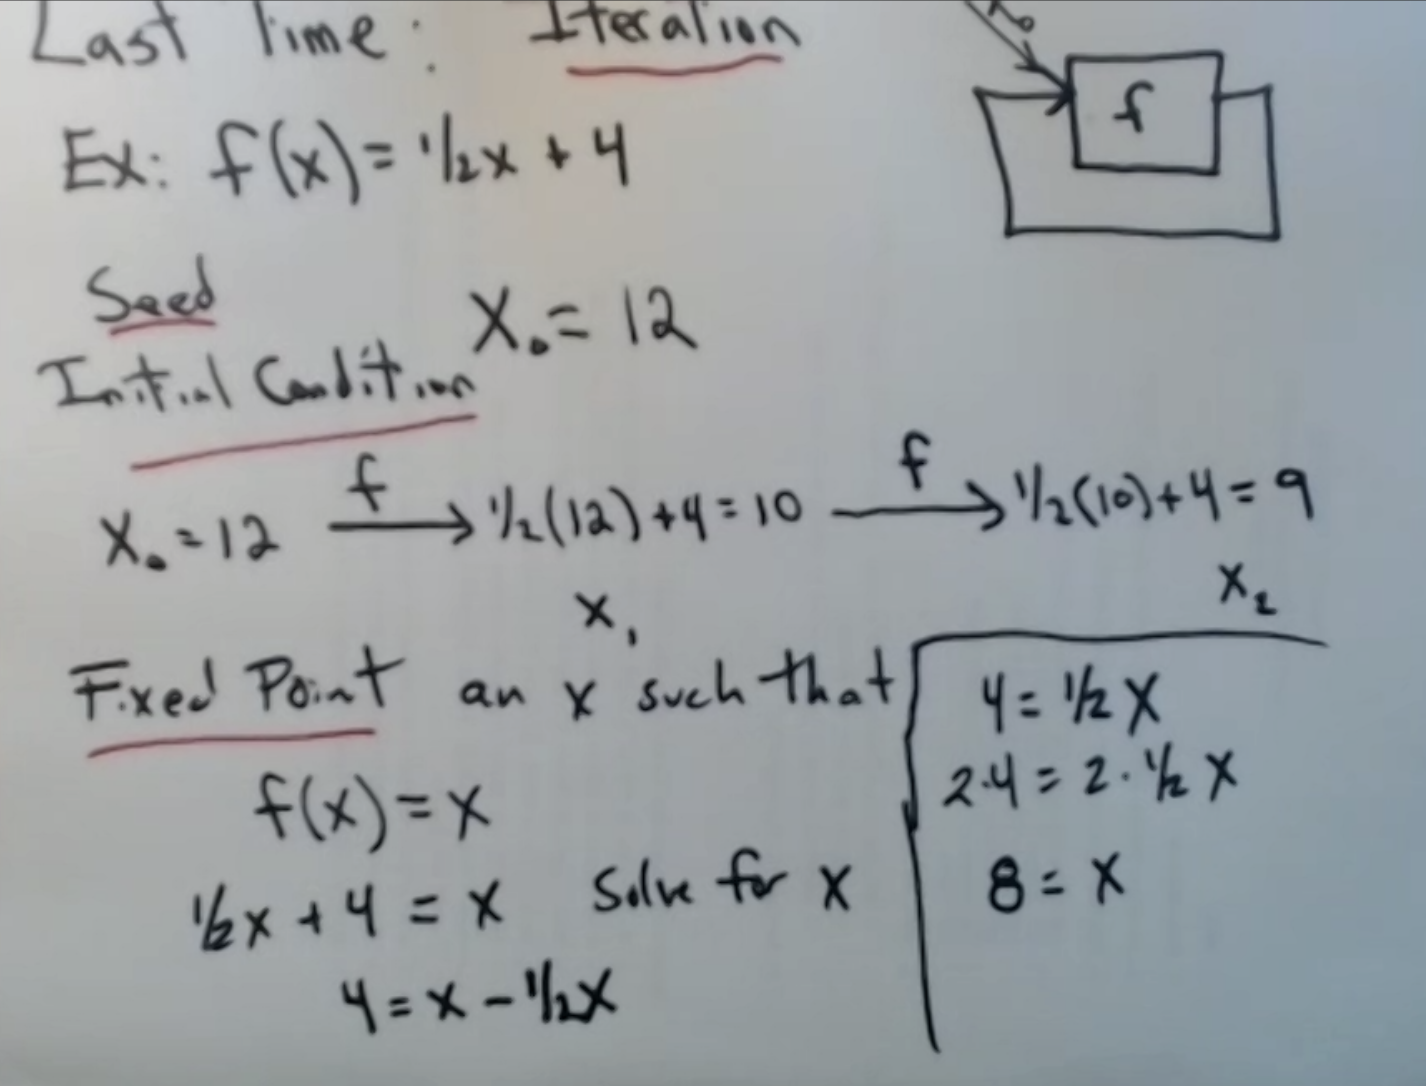 Last Time: Iteration
x₀
f
Ex: f(x) = 1/2x + 4
Seed
Initial Condition
X₀ = 12
X₀ = 12 f→ 1/2(12) + 4 = 10 f→ 1/2(10) + 4 = 9
x₁ x₂
Fixed Point an x such that
f(x) = x
1/2x + 4 = x solve for x
4 = x - 1/2x
4 = 1/2 x
2·4 = 2·1/2 x
8 = x